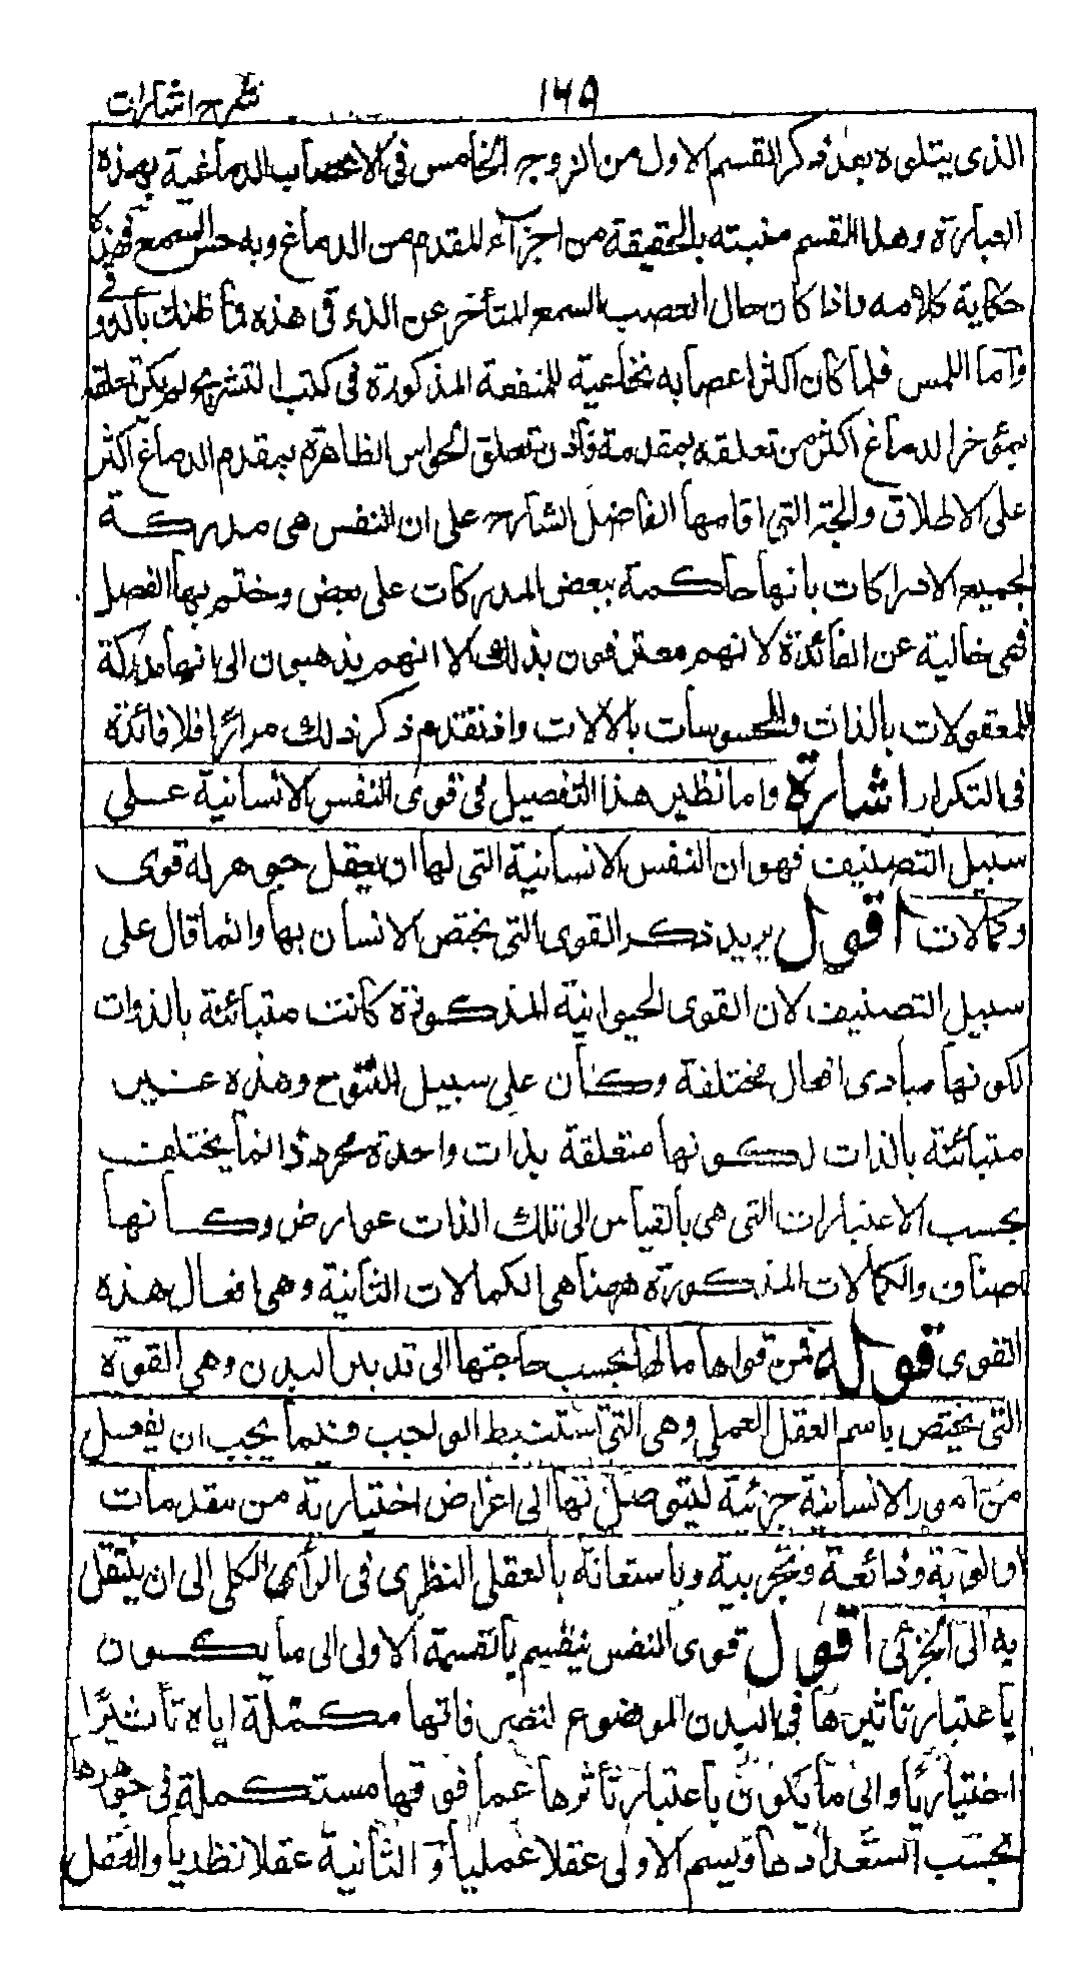 ١٦٥ شرح اشارات
الذى يتلوه بعد ذكر القسم الاول من الزوج الخامس فى الاعصاب الدماغية بهذه
العبارة وهذا القسم منبته بالحقيقة من اجزآء المقدم من الدماغ وبه حس السمع فهذا
حكاية كلامه واذا كان حال العصب السمع المتأخر عن الذوق هذه فما ظنك بالذوق
وآما اللمس فلما كان اكثر اعصابه نخاعية للمنفعة المذكورة فى كتب التشريح ولم يكن تعلقه
بمؤخر الدماغ اكثر من تعلقه بمقدمة فآذن تعلق الحواس الظاهرة بمقدم الدماغ اكثر
على الاطلاق والحجة التى اقامها الفاضل الشارح على ان النفس هى مدركة
لجميع الادراكات بانها حاكمة ببعض المدركات على بعض وختم بها الفصل
فهى خالية عن الفائدة لانهم معترفون بذلك الا انهم يذهبون الى انها مدركة
للمعقولات بالذات وللمحسوسات بالالات واذ تقدم ذكر ذلك مرارا فلا فائدة
فى التكرار اشارة واما نظير هذا التفصيل فى قوى النفس الانسانية على
سبيل التصنيف فهو ان النفس الانسانية التى لها ان يعقل جوهر له قوى
وكمالات اقول يريد ذكر القوى التى يختص الانسان بها وانما قال على
سبيل التصنيف لان القوى الحيوانية المذكورة كانت متبائنة بالذوات
لكونها مبادى افعال مختلفة وكان على سبيل التنوع وهذه غير
متبائنة بالذات لكونها متعلقة بذات واحدة مجردة انما يختلف
بحسب الاعتبارات التى هى بالقياس الى تلك الذات عوارض وكانها
اصناف والكمالات المذكورة ههنا هى الكمالات الثانية وهى افعال هذه
القوى قوله فمن قواها مالها بحسب حاجتها الى تدبير البدن وهى القوة
التى يختص باسم العقل العملى وهى التى تستنبط الواجب فيما يجب ان يفعل
من امور الانسانية جزئية ليتوصل بها الى اغراض اختيارية من مقدمات
اولوية وذائعة وتجربية وباستعانة بالعقل النظرى فى الرأى الكلى الى ان ينتقل
به الى الجزئى اقول قوى النفس ينقسم بالقسمة الاولى الى ما يكون
باعتبار تاثيرها فى البدن الموضوع لتصرفاتها مكملة اياه تأثيرًا
اختياريا والى ما يكون باعتبار تأثرها عما فوقها مستكملة فى جوهرها
بحسب استعدادها ويسم الاولى عقلا عمليا و الثانية عقلا نظريا والعقل